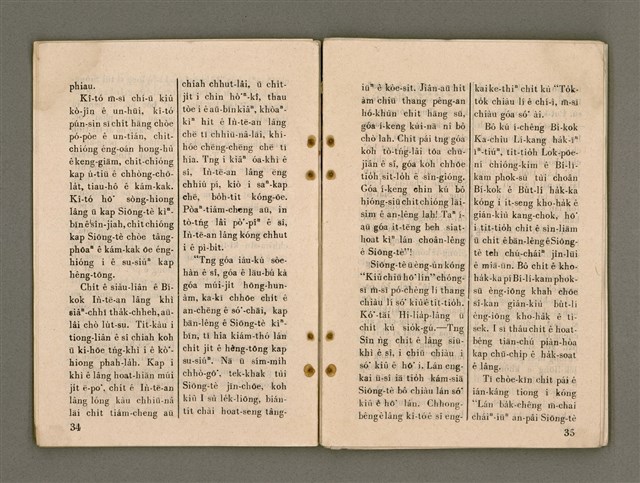 phiau.
Kî-tó m̄-sī chí-ū kiû
kò-jîn ê un-hūi, kî-tó
pún-sin sī chi̍t hāng chòe
pó-pòe ê un-tián, chit-
chióng éng-oán hong-hù
ê keng-giām, chit-chióng
kap ú-tiū ê chhòng-chō-
lât, tiau-hô ê kám-kak.
Kî-tó hō͘ sòng-hiong
lâng ū kap Siōng-tè kìⁿ-
bīn ê sîn-jiah, chit chióng
kap Siōng-tè chòe tâng-
phōaⁿ ê kám-kak ōe éng-
hióng i ê su-siúⁿ kap
hêng-tōng.
Chi̍t ê siàu-liân ê Bí-
kok Ìn-tē-an lâng khì
siâⁿ-chhī tha̍k-chheh, āu-
lâi chò lu̍t-su. Ti̍t-kàu i
tiong-liân ê sî chiah koh
ū ki-hōe tńg-khì i ê kò͘-
hiong phah-la̍h. Kap i
khì ê lâng hoat-hiān múi
ji̍t ē-po͘, chit ê Ìn-tē-an
lâng lóng kàu chhiū-nâ
lāi chit tiám-cheng āu
chiah chhut-lâi, ū chi̍t-
ji̍t i chin hòⁿ-kî, thau
tòe i ê āu-bīn kiâⁿ, khòaⁿ-
kìⁿ hit ê Ìn-tē-an lâng
chē tī chhiū-nâ-lāi, khì-
hōe chēng-chēng chē tī
hia. Tng i kiâⁿ óa-khì ê
sî, Ìn-tē-an lâng eng
chhiú pí, kiò i saⁿ-kap
chē, bo̍h-tit kóng-ōe.
Pòaⁿ-tiám-cheng āu, in
tò-tńg lâi pò͘-pîⁿ ê sî,
Ìn-tē-an lâng kóng chhut
i ê pì-bi̍t.
"Tng góa iáu-kú sòe-
hàn ê sî, góa ê lāu-bú kà
góa múi-ji̍t hông-hun-
àm, ka-kī chhōe chi̍t ê
an-chēng ê só͘-chāi, kap
bān-lêng ê Siōng-tè kìⁿ-
bīn, tī hia kiám-thó lán
chi̍t ji̍t ê hêng-tōng kap
su-siúⁿ. Nā ū sím-mi̍h
chhò-gō͘, tek-khak tùi
Siōng-tè jīn-chōe, koh
kiû I sù le̍k-liōng, bián-
tit chài hoat-seng tâng-
34
iūⁿ ê kòe-sit. Jiân-āu hit
àm chiū thang pêng-an
hó-khùn chi̍t hāng sū,
góa í-keng kúi-nā nî bô
chò lah. Chit pái tng góa
koh tò-tńg-lâi tōa chū-
jiân ê sî, góa koh chhōe
tio̍h si̍t-lo̍h ê sìn-gióng.
Góa í-keng chin kú bô
hióng-siū chit chióng lāi-
sim ê an-lêng lah! Taⁿ í-
āu góa it-tēng beh siat-
hoat kìⁿ lán choân-lêng
ê Siōng-tè"!
Siōng-tè ū èng-ún kóng
"Kiû chiū hō͘ lín" chóng-
sī m̄-sī pó-chèng lí thang
chiàu lí só͘ kiû ê tit-tio̍h.
Kó͘-tāi Hi-lia̍p-lâng ū
chit kú sio̍k-gú.—Tng
Sîn ǹg chi̍t ê lâng siū-
khì ê sî, i chiū chiàu i
só͘ kiû ê hō͘ i. Lán eng-
kai ū-sî iā tio̍h kám-siā
Siōng-tè bô chiàu lán só͘
kiû ê hō͘ lán. Chhong-
bêng ê lâng kî-tó ê sî eng-
kai ke-thiⁿ chit kú "Tók-
to̍k chiàu lí ê chí-ì, m̄-sī
chiàu góa só͘ ài.
Bó͘ kú í-chêng Bí-kok
Ka-chiu Lí-kang ha̍k-īⁿ
ìⁿ-tiúⁿ, ti̍t-tio̍h Lok-pōe-
nî chióng-kim ê Bi̍-li-
kam phok-sū tùi choân
Bí-kok ê Bu̍t-lí ha̍k-ka
kóng í it-seng kho-ha̍k ê
gián-kiù kang-chok, hō͘
i tit-tio̍h chit ê sìn-liām
ū chi̍t ê bān-lêng ê Siōng-
tè teh chú-chāiⁿ jîn-lūi
ê miā-ūn. Bô chit ê kho-
ha̍k-ka pí Bi̍-li-kam phok-
sū èng-iōng khah chōe
sî-kan gián-kiù bu̍t-lí
èng-iōng kho-ha̍k ê ti-
sek. I sī thâu chi̍t ê hoat-
bêng tiān-chú piàn-hòa
kap chū-chi̍p ê ha̍k-soat
ê lâng.
Tī chòe-kīn chit pái ê
ián-káng tiong i kóng
"Lán ba̍k-chêng m̄-chai
cháiⁿ-iūⁿ an-pâi Siōng-tè
35